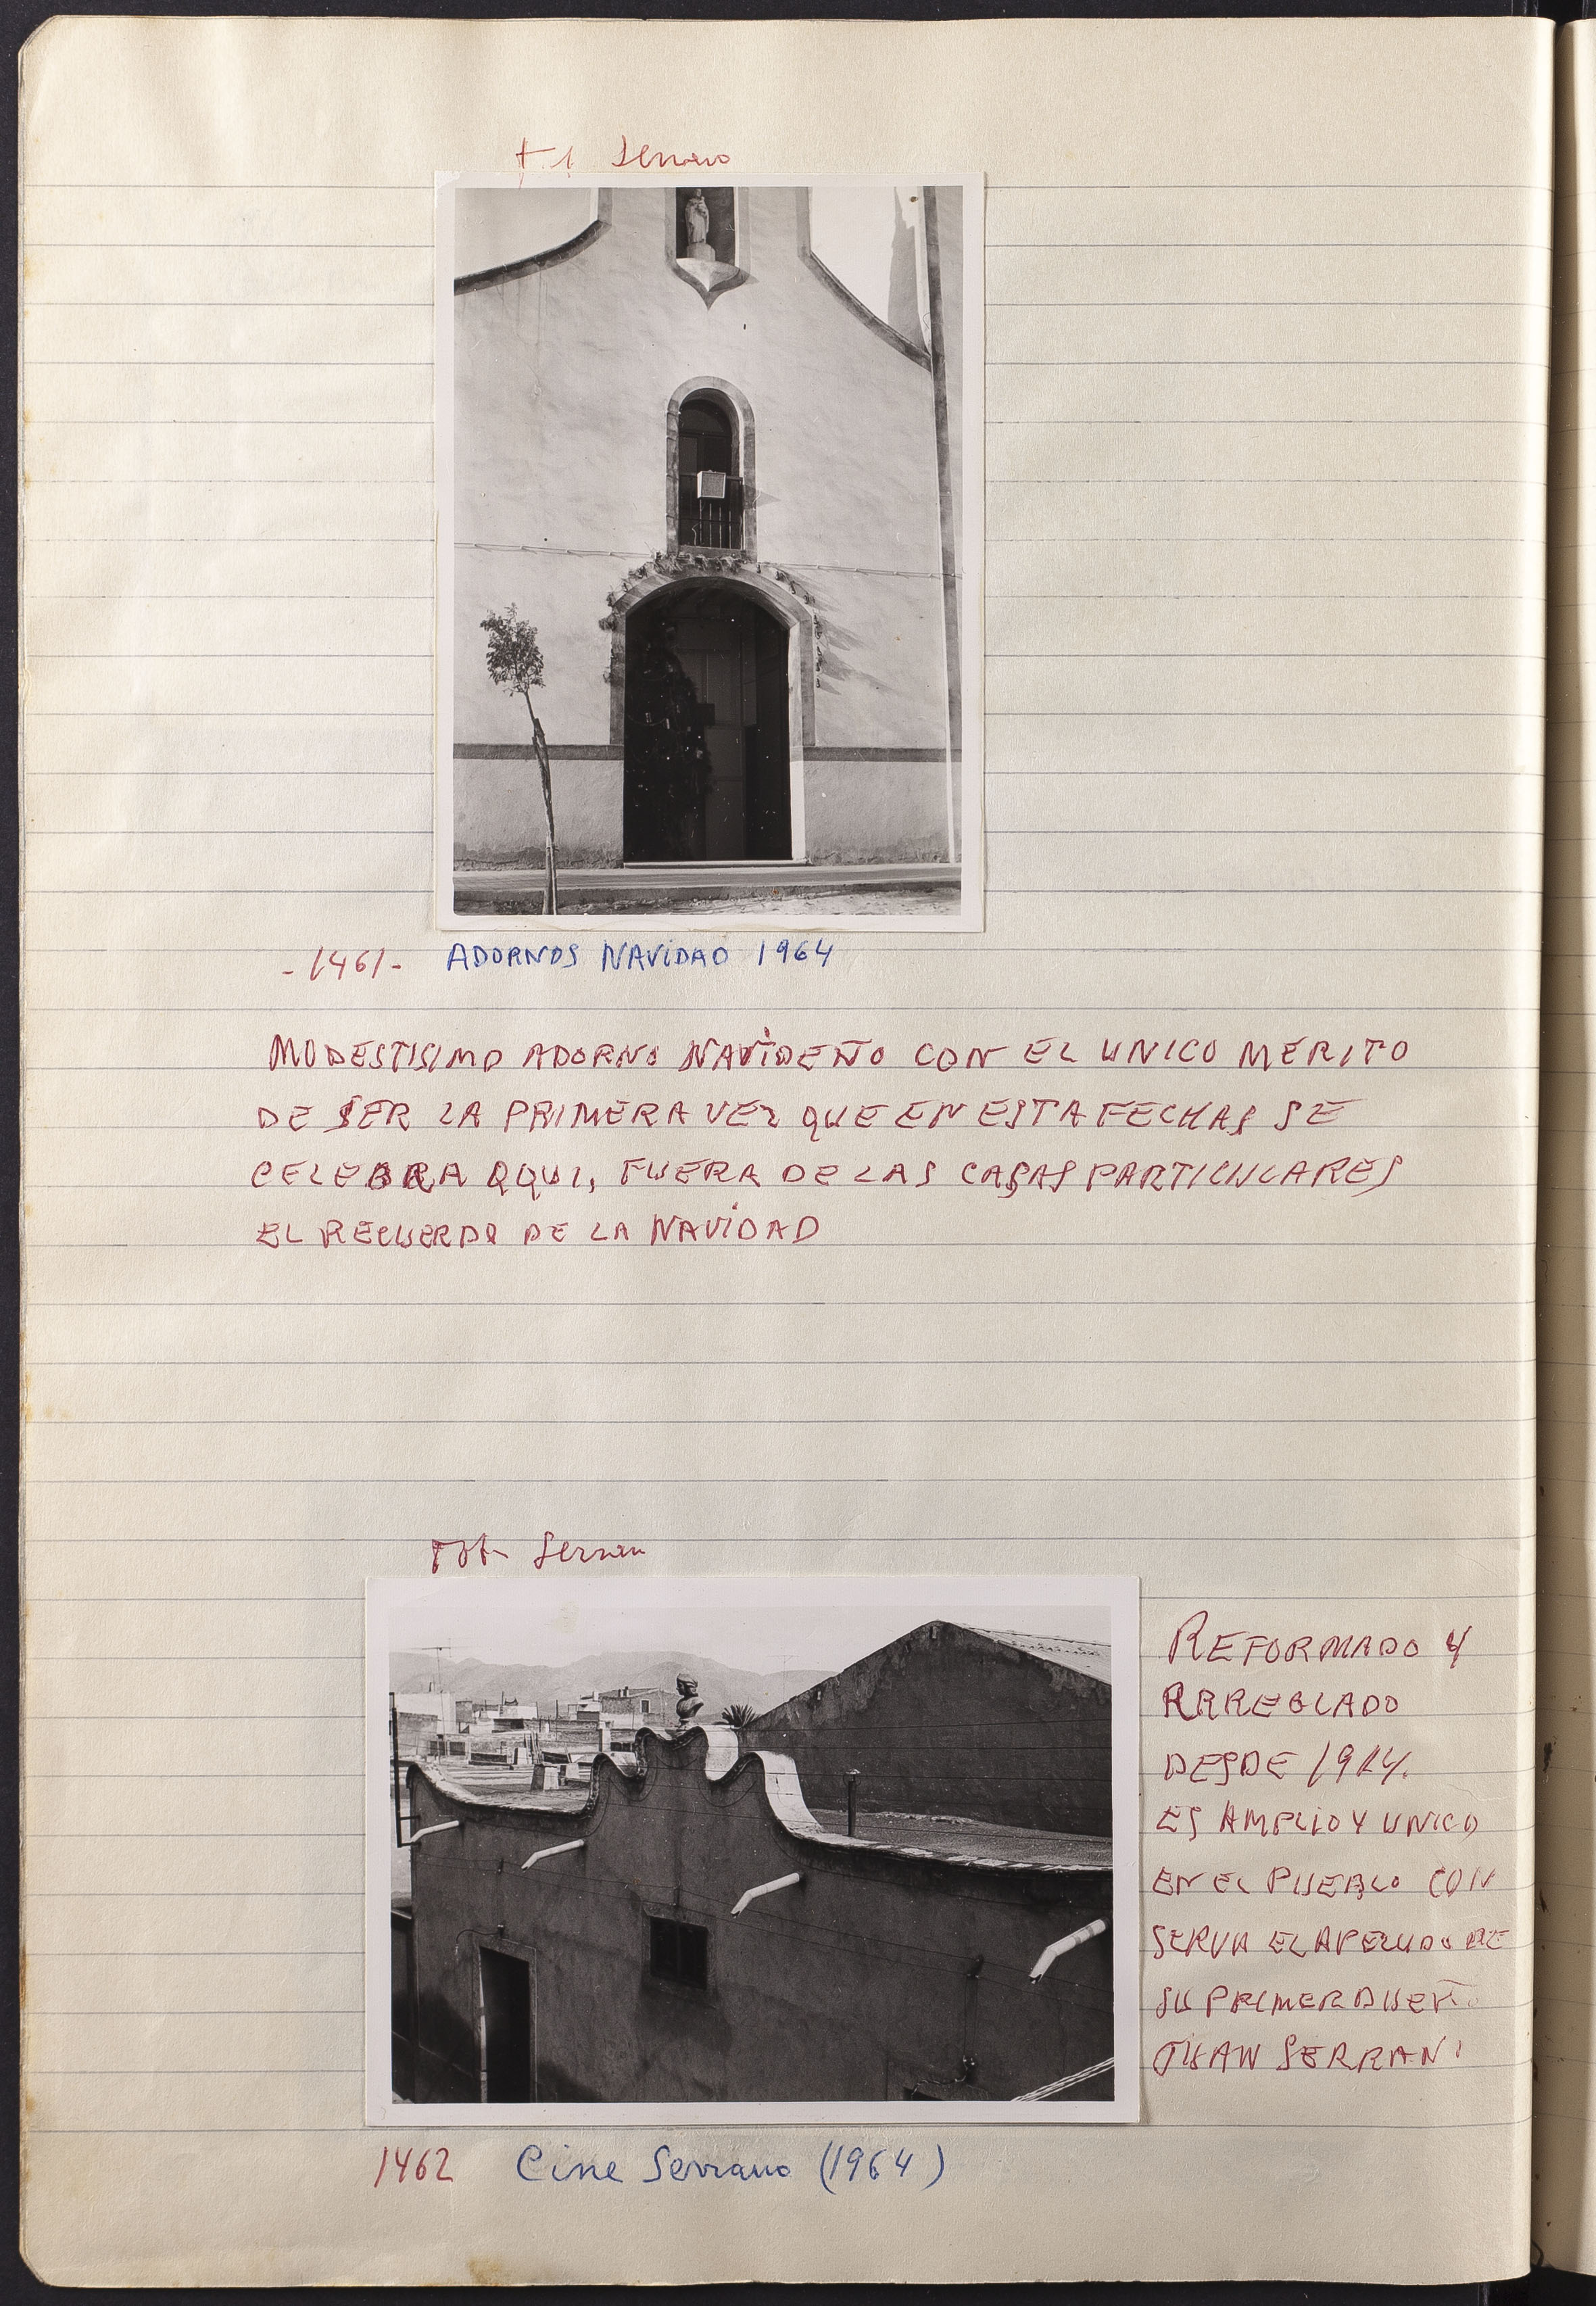 Serrano
-1461- ADORNOS NAVIDAD 1964
MODESTISIMO ADORNO NAVIDEÑO CON EL UNICO MERITO
DE SER LA PRIMERA VEZ QUE EN ESTA FECHAS SE
CELEBRA AQUI, FUERA DE LAS CASAS PARTICULARES
EL RECUERDO DE LA NAVIDAD
Fot Serrano
REFORMADO Y
ARREGLADO
DESDE
ES AMPLIO Y UNICO
EN EL PUEBLO CON
SERVA EL APELLIDO DE
SU PRIMER DUEÑO
JUAN SERRANO
1462 Cine Serrano (1964)